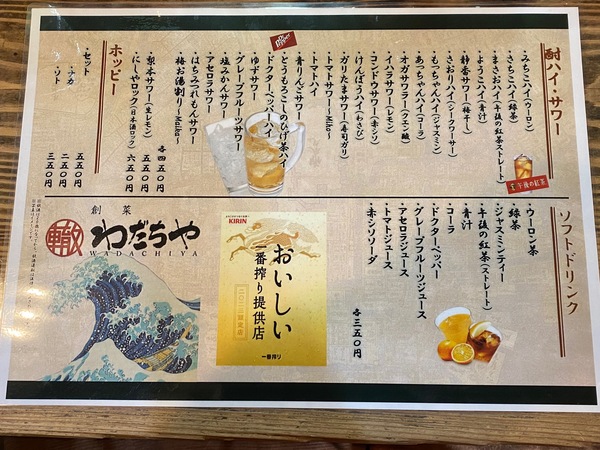 酎ハイ・サワー
・みちこハイ(ウーロン)
・さちこハイ(緑茶)
・まさおハイ(午後の紅茶ストレート)
・ようこハイ(青汁)
・静香サワー(梅干し)
・さおりハイ(シークワーサー)
・もっちゃんハイ(ジャスミン)
・あっちゃんハイ(コーラ)
・オガサワラ(クエン酸)
・イハラサワー(レモン)
・コンドウサワー(赤シソ)
・けんぼうハイ(わさび)
・ガリたまサワー(寿司ガリ)
・トマトサワー〜Miho〜
・トマトハイ
・青りんごサワー
・とうもろこしのひげ茶ハイ
・ドクターペッパーハイ
・ゆずサワー
・グレープフルーツサワー
・塩みかんサワー
・アセロラサワー
・はちみつれもんサワー
・梅お湯割り〜Maika〜
各四五〇円
・梨本サワー(生レモン)
五五〇円
・にしやロック(日本酒ロック)
六五〇円
ホッピー
・セット
五五〇円
・ナカ
二五〇円
・ソト
三五〇円
Dr Pepper
午後の紅茶
ソフトドリンク
・ウーロン茶
・緑茶
・ジャスミンティー
・午後の紅茶(ストレート)
・青汁
・コーラ
・ドクターペッパー
・グレープフルーツジュース
・アセロラジュース
・トマトジュース
・赤シソソーダ
各三五〇円
KIRIN
おいしい
一番搾り提供店
二〇二二認定店
一番搾り
創菜
轍
わだちや
WADACHIYA